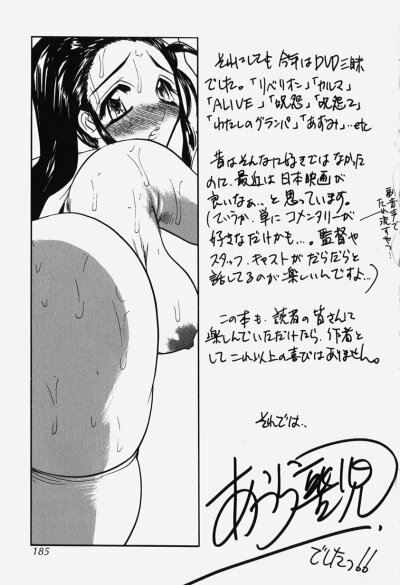 それにしても 今年はDVD三昧
でした。「リベリオン」「カルマ」
「ALIVE」「呪怨」「呪怨2」
「わたしのグランパ」「あずみ」…etc
昔はそんなに好きではなかった
のに、最近は日本映画が
良いなぁ…と思っています。
(ていうか、単にコメンタリーが
好きなだけかも…。監督や
スタッフ、キャストがだらだらと
話してるのが楽しいんですよ…)
副音声で
たれ流すやつ…
この本も、読者の皆さんに
楽しんでいただけたら、作者と
して これ以上の喜びはありません。
それでは…
でしたっ!!
185